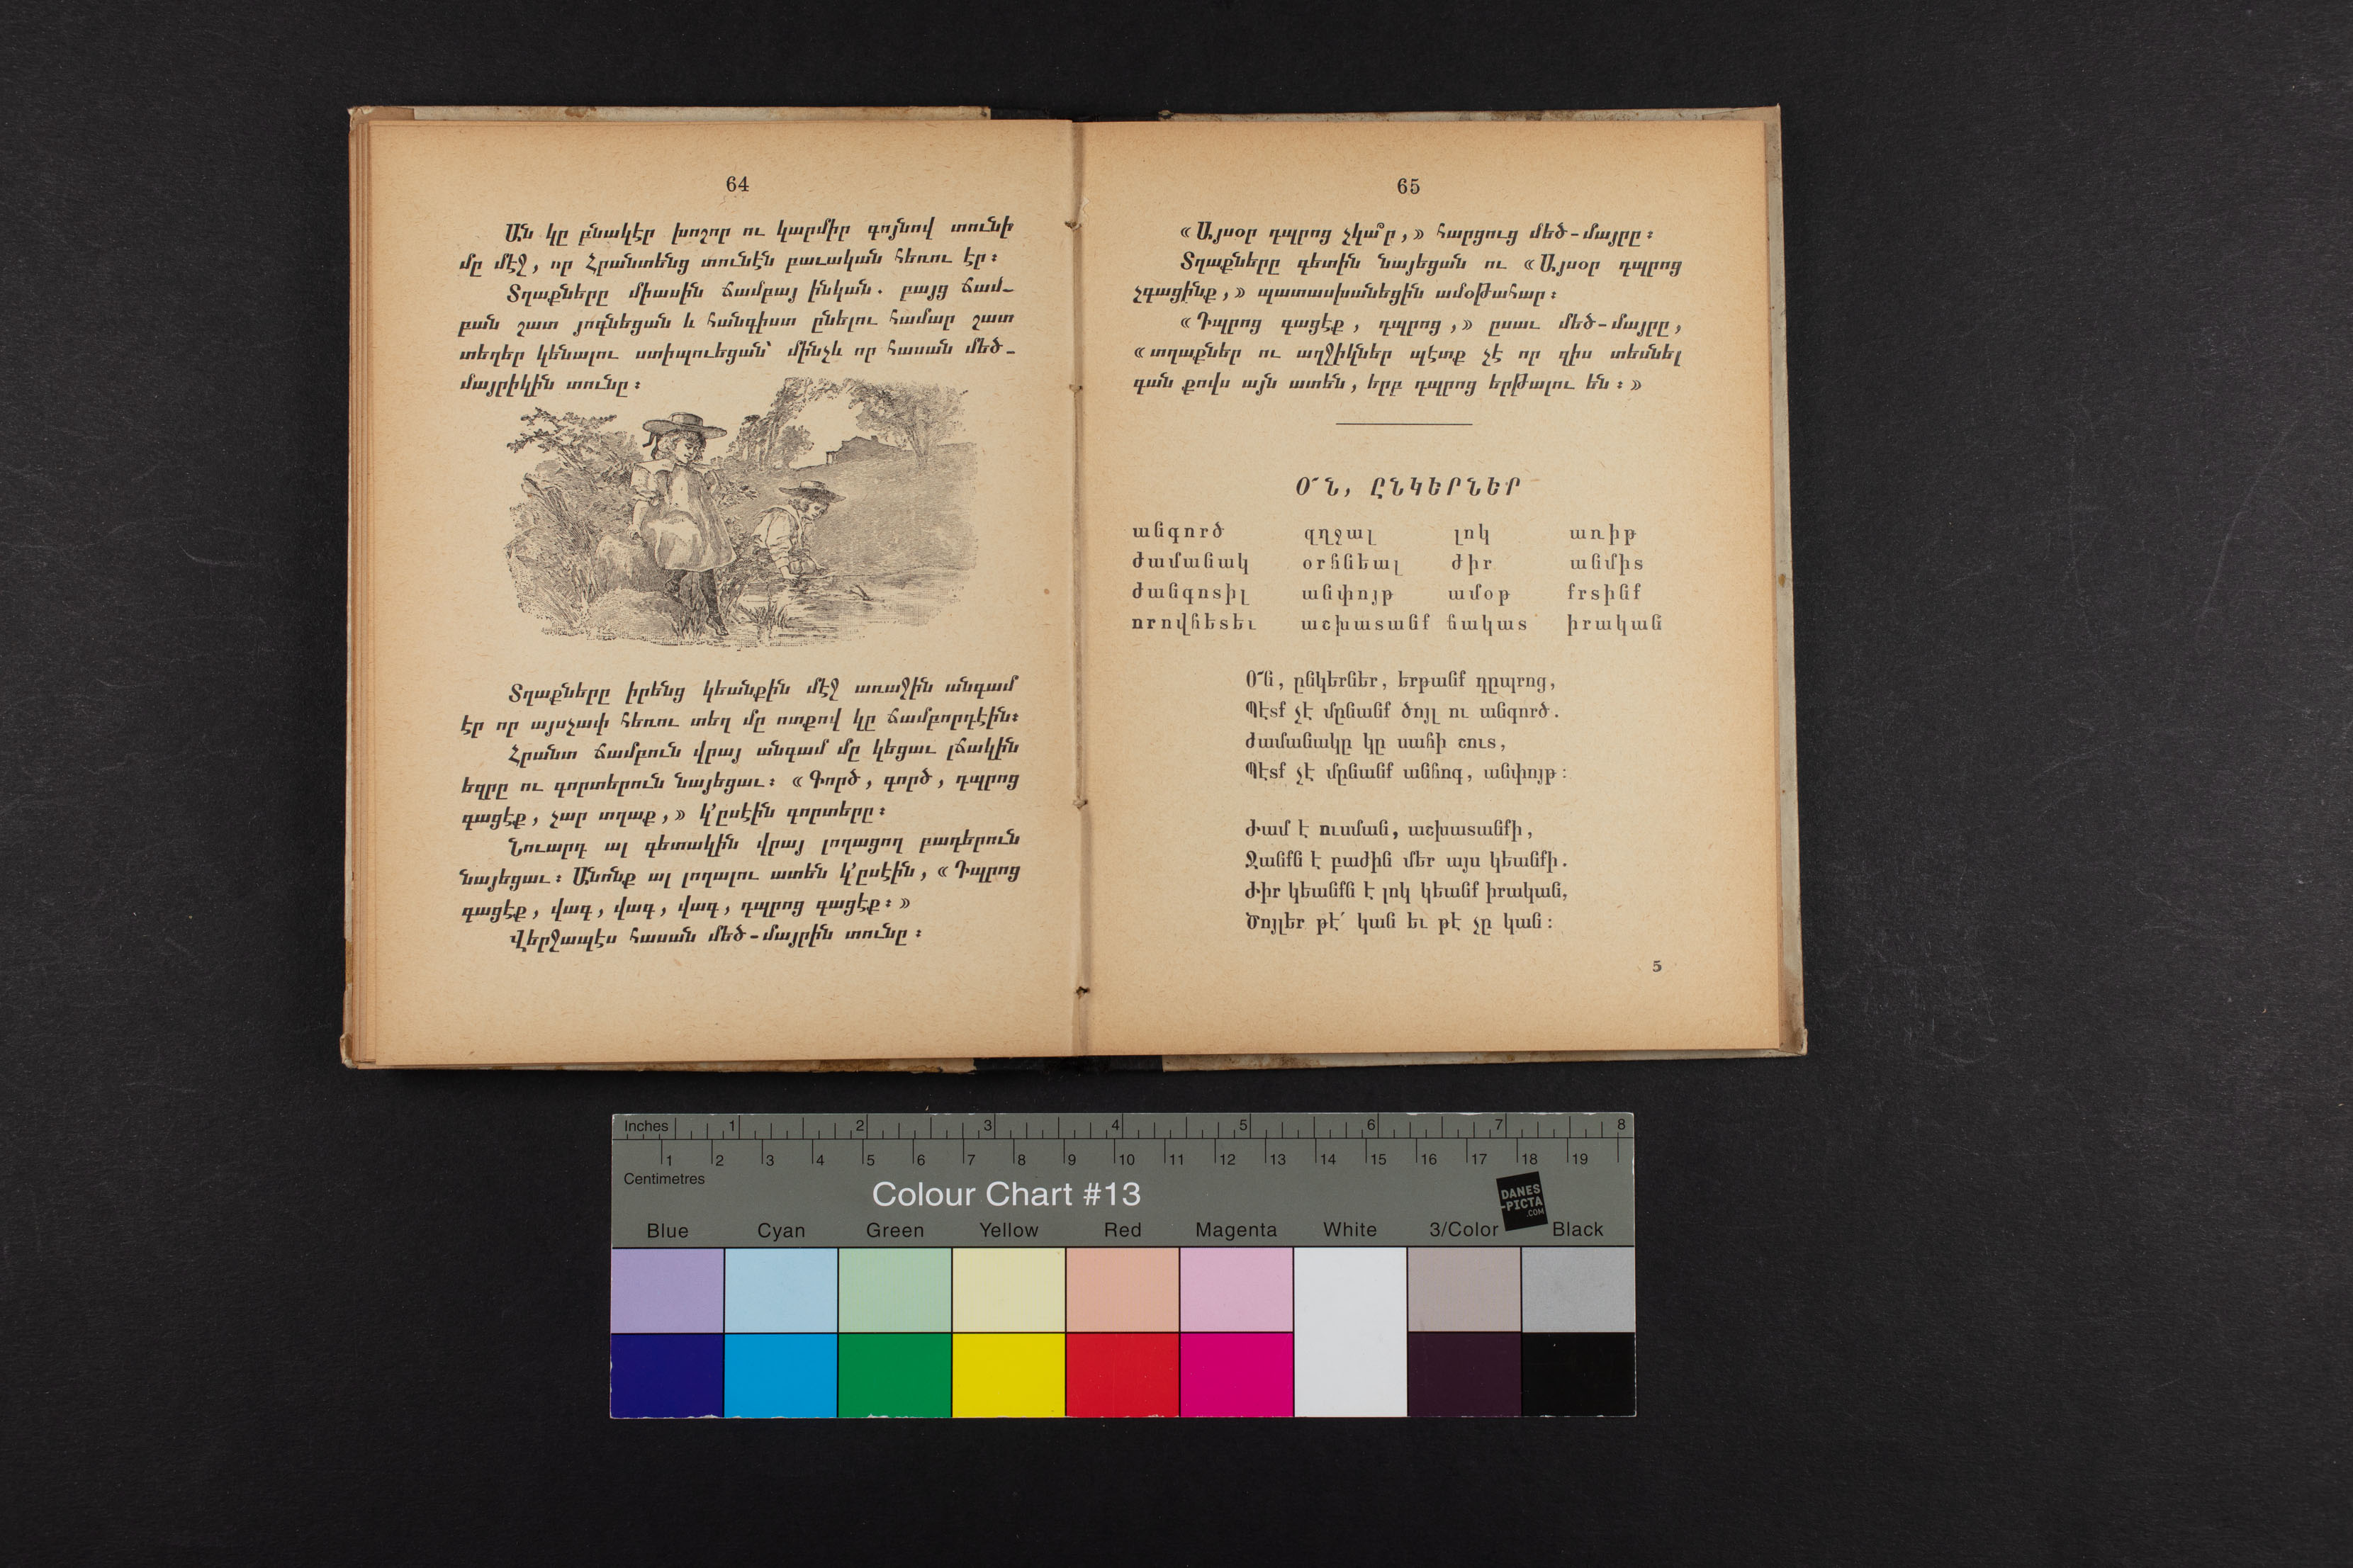 64
Ան կը բնակէր խոշոր ու կարմիր գոյնով տունի
մը մէջ, որ Հրանտենց տունէն բաւական հեռու էր։
Տղաքները միասին ճամբայ ինկան. բայց ճամ-
բան շատ յոգնեցան և հանգիստ ընելու համար շատ
տեղեր կենալու ստիպուեցան՝ մինչև որ հասան մեծ-
մայրիկին տունը։
Տղաքները իրենց կեանքին մէջ առաջին անգամ
էր որ այսչափ հեռու տեղ մը ոտքով կը ճամբորդէին։
Հրանտ ճամբուն վրայ անգամ մը կեցաւ լճակին
եզրը ու գորտերուն նայեցաւ։ «Գործ, գործ, դպրոց
գացէք, չար տղաք,» կ՚ըսէին գորտերը։
Նուարդ ալ գետակին վրայ լողացող բադերուն
նայեցաւ։ Անոնք ալ լողալու ատեն կ՚ըսէին, «Դպրոց
գացէք, վագ, վագ, վագ, դպրոց գացէք։»
Վերջապէս հասան մեծ-մայրին տունը։
65
«Այսօր դպրոց չկա՞ր,» հարցուց մեծ-մայրը։
Տղաքները գետին նայեցան ու «Այսօր դպրոց
չգացինք,» պատասխանեցին ամօթահար։
«Դպրոց գացէք, դպրոց,» ըսաւ մեծ-մայրը,
«տղաքներ ու աղջիկներ պէտք չէ որ զիս տեսնել
գան քովս այն ատեն, երբ դպրոց երթալու են։»
Օ՜Ն, ԸՆԿԵՐՆԵՐ
անգործ զղջալ լոկ առիթ
ժամանակ օրհնեալ ժիր անմիտ
ժանգոտիլ անփոյթ ամօթ քրտինք
որովհետեւ աշխատանք հակառ իրական
Օ՜ն, ընկերներ, երթանք դըպրոց,
Պէտք չէ մընանք ծոյլ ու անգործ.
Ժամանակը կը սահի շուտ,
Պէտք չէ մընանք անհոգ, անփոյթ։
Ժամ է ուսման, աշխատանքի,
Ջանքն է բաժին մեր այս կեանքի.
Ժիր կեանքն է լոկ կեանք իրական,
Ծոյլեր թէ՛ կան եւ թէ չը կան։
5
Inches 1 2 3 4 5 6 7 8
1 2 3 4 5 6 7 8 9 10 11 12 13 14 15 16 17 18 19
Centimetres
Colour Chart #13
DANES
-PICTA
.COM
Blue Cyan Green Yellow Red Magenta White 3/Color Black